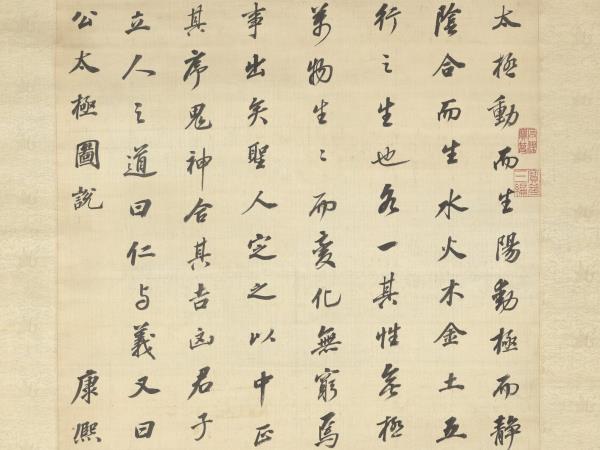 太極動而生陽動極而靜
陰合而生水火木金土五
行之生也各一其性無極
萬物生〻而變化無窮焉
事出矣聖人定之以中正
其序鬼神合其吉凶君子
立人之道曰仁與義又曰
公太極圖說
康熙